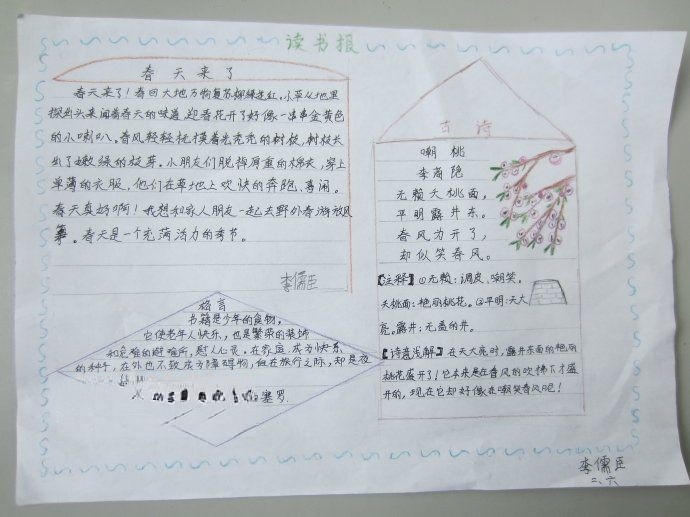 读书报
春天来了
春天来了！春回大地万物复苏柳绿花红。小草从地里
探出头来闻着春天的味道，迎春花开了好像一串串金黄色
的小喇叭。春风轻轻抚摸着光秃秃的树枝，树枝长
出了嫩绿的枝芽。小朋友们脱掉厚重的棉衣，穿上
单薄的衣服，他们在草地上欢快的奔跑、喜闹。
春天真好啊！我想和家人朋友一起去野外春游放风
筝。春天是一个充满活力的季节。
李儒臣
格言
书籍是少年的食物，
它使老年人快乐，也是繁荣的装饰
和危难的避难所，慰人心灵。在家庭成为快乐
的种子，在外也不致成为障碍物，但在旅行之际，却是夜
塞罗
古诗
嘲桃
李商隐
无赖夭桃面，
平明露井东。
春风为开了，
却似笑春风。
【注释】①无赖：调皮、嘲笑。
夭桃面：艳丽桃花。②平明：天大
亮。露井：无盖的井。
【诗意浅解】在天大亮时，露井东面的艳丽
桃花盛开了！它本来是在春风的吹拂下才盛
开的，现在它却好像在嘲笑春风呢！
李儒臣
二、六